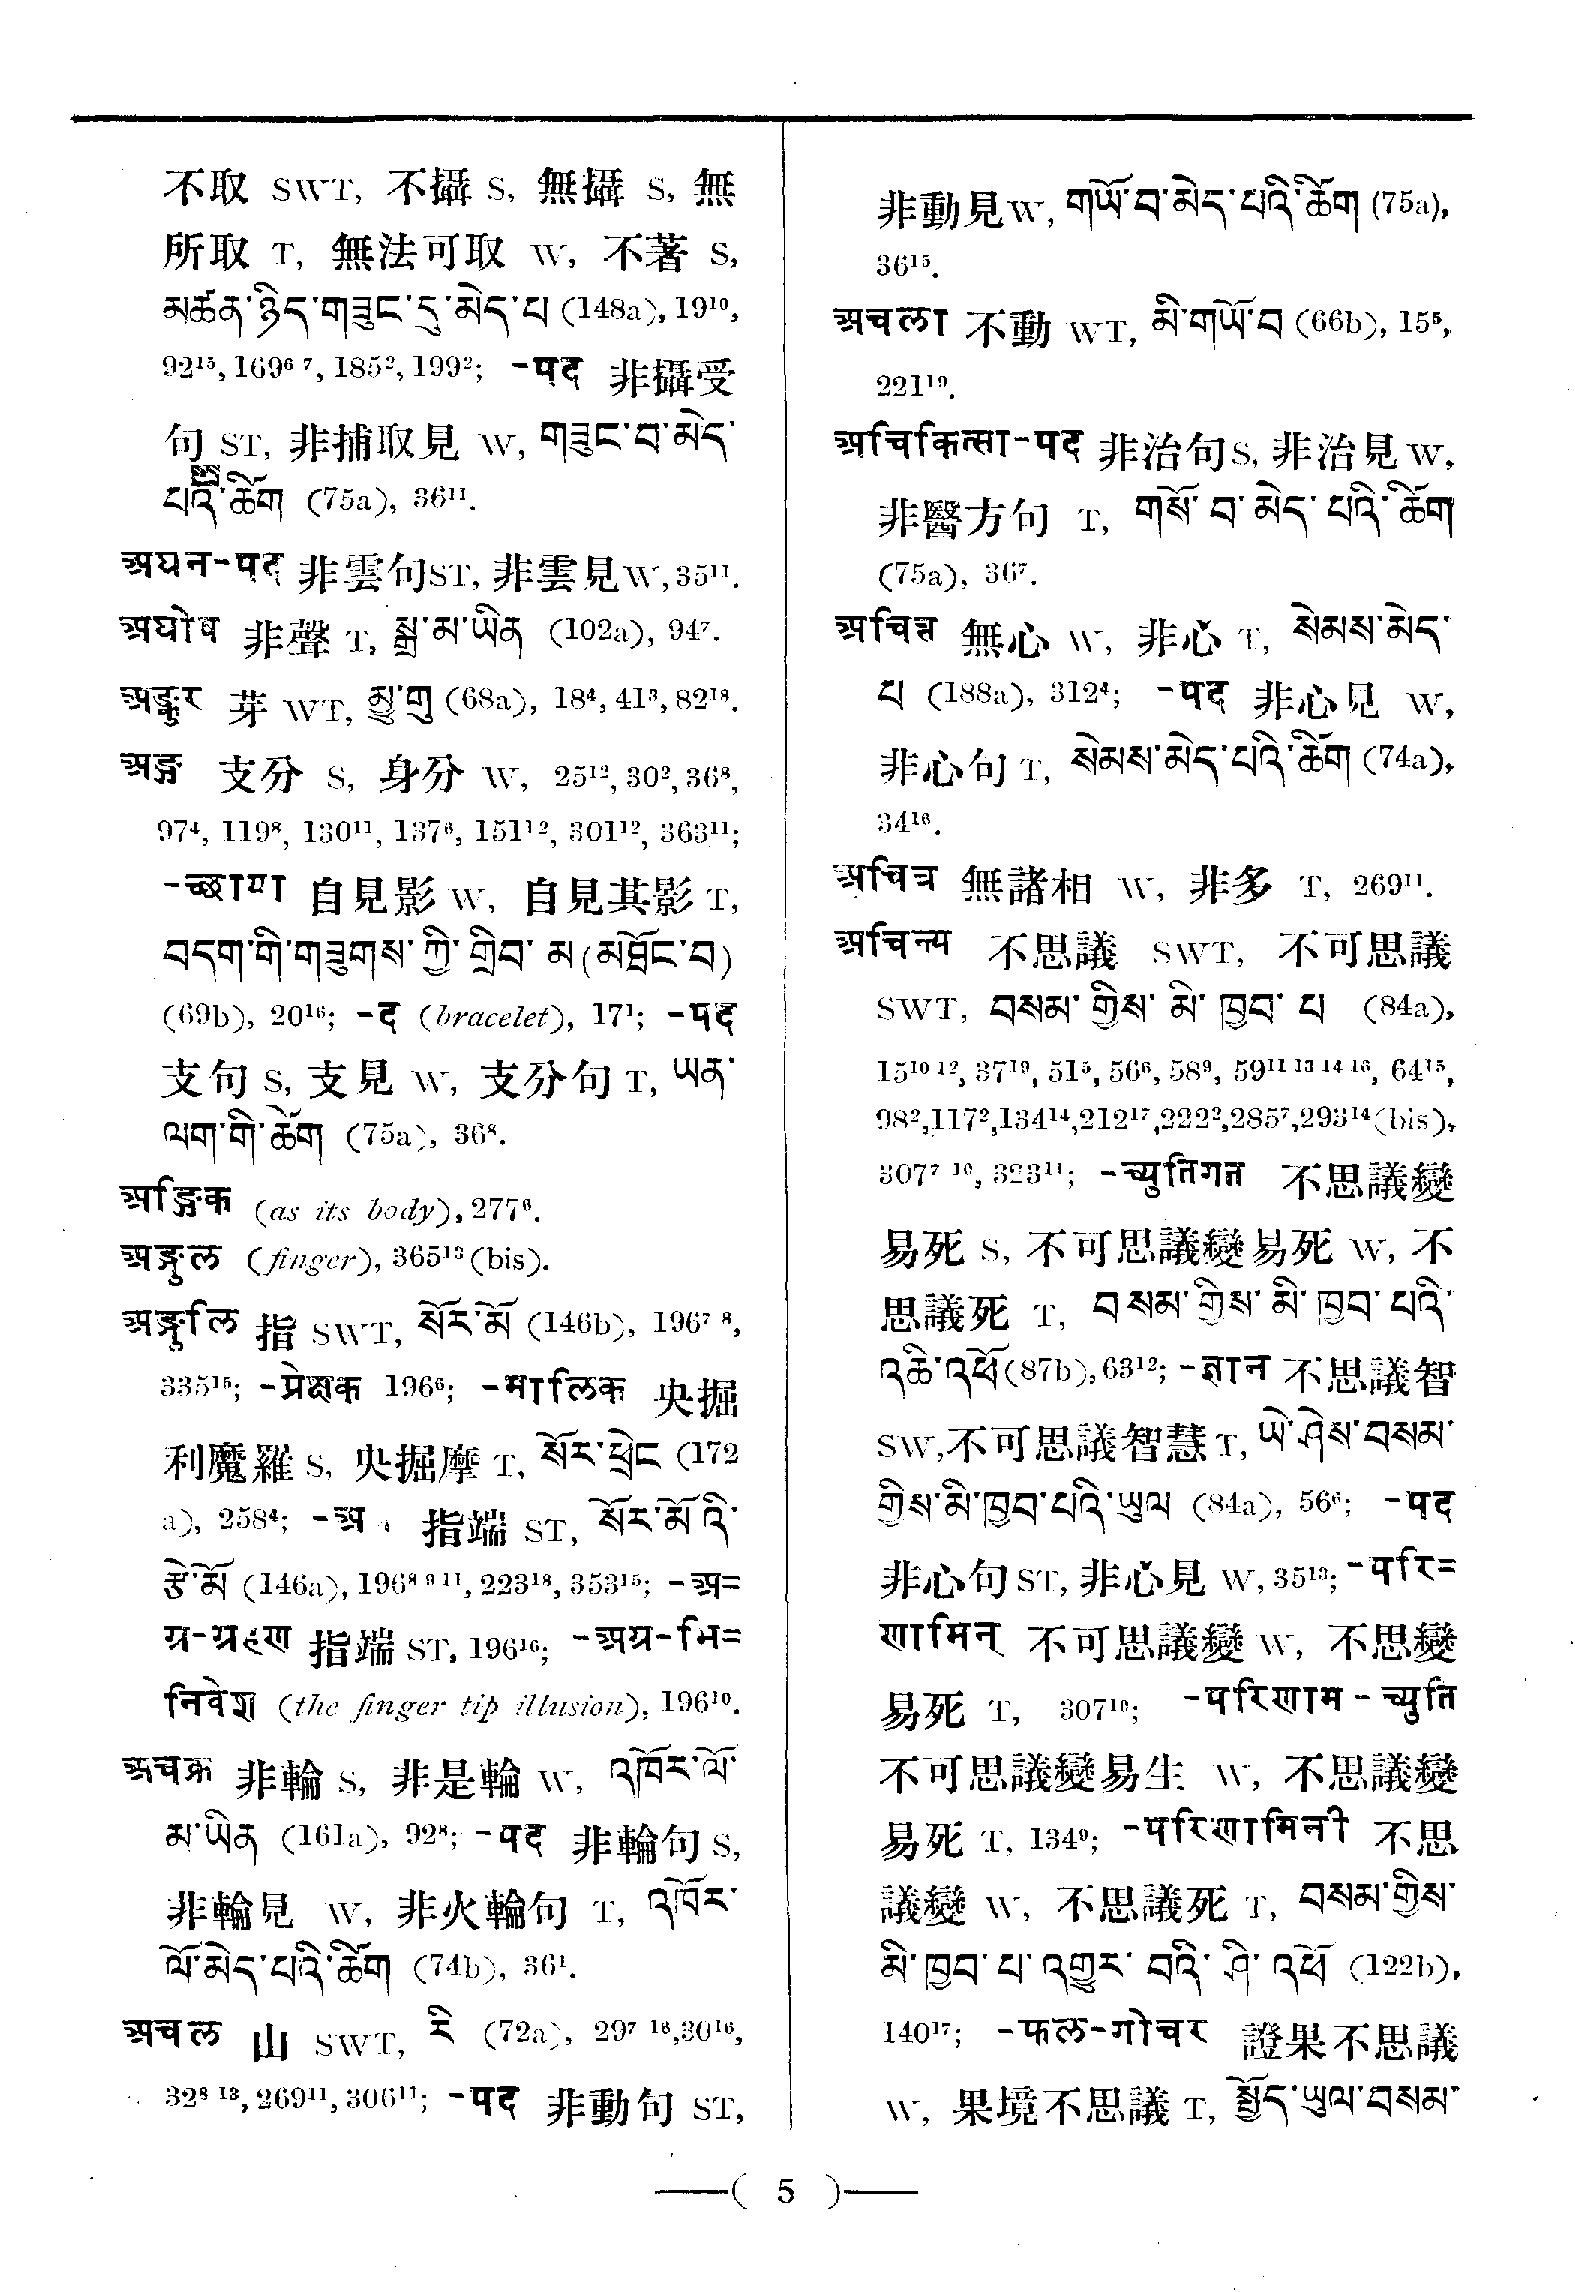 不取 SWT, 不攝 S, 無攝 S, 無
所取 T, 無法可取 W, 不著 S,
མཚན་ཉིད་གཟུང་དུ་མེད་པ (148a), 19¹⁰,
92¹⁵, 169⁶ ⁷, 185², 199²; -पद 非攝受
句 ST, 非捕取見 W, གཟུང་བ་མེད་
པའི་ཚིག (75a), 36¹¹.
अघन-पद 非雲句ST, 非雲見W, 35¹¹.
अघोष 非聲 T, སྒྲ་མ་ཡིན (102a), 94⁷.
अङ्कुर 芽 WT, མྱུ་གུ (68a), 18⁴, 41³, 82¹⁸.
अङ्ग 支分 S, 身分 W, 25¹², 30², 36⁸,
97⁴, 119⁸, 130¹¹, 137⁶, 151¹², 301¹², 363¹¹;
-च्छाया 自見影 W, 自見其影 T,
བདག་གི་གཟུགས་ཀྱི་གྲིབ་མ(མཐོང་བ)
(69b), 20¹⁶; -द (bracelet), 17¹; -पद
支句 S, 支見 W, 支分句 T, ཡན་
ལག་གི་ཚིག (75a), 36⁸.
अङ्गिक (as its body), 277⁶.
अङ्गुल (finger), 365¹³ (bis).
अङ्गुलि 指 SWT, སོར་མོ (146b), 196⁷ ⁸,
335¹⁵; -प्रेक्षक 196⁶; -मालिक 央掘
利魔羅 S, 央掘摩 T, སོར་ཕྲེང (172
a), 258⁴; -अ 指端 ST, སོར་མོའི་
རྩེ་མོ (146a), 196⁸ ⁹ ¹¹, 223¹⁸, 353¹⁵; -अ=
ग्र-ग्रहण 指端 ST, 196¹⁶; -अग्र-भि=
निवेश (the finger tip illusion), 196¹⁰.
अचक्र 非輪 S, 非是輪 W, འཁོར་ལོ་
མ་ཡིན (161a), 92⁸; -पद 非輪句 S,
非輪見 W, 非火輪句 T, འཁོར་
ལོ་མེད་པའི་ཚིག (74b), 36¹.
अचल 山 SWT, རི (72a), 29⁷ ¹⁶, 30¹⁶,
32⁸ ¹³, 269¹¹, 306¹¹; -पद 非動句 ST,
非動見W, གཡོ་བ་མེད་པའི་ཚིག (75a),
36¹⁵.
अचला 不動 WT, མི་གཡོ་བ (66b), 15⁵,
221¹⁹.
अचिकित्सा-पद 非治句S, 非治見W,
非醫方句 T, གསོ་བ་མེད་པའི་ཚིག
(75a), 36⁷.
अचित्त 無心 W, 非心 T, སེམས་མེད་
པ (188a), 312⁴; -पद 非心見 W,
非心句 T, སེམས་མེད་པའི་ཚིག (74a),
34¹⁶.
अचित्र 無諸相 W, 非多 T, 269¹¹.
अचिन्त्य 不思議 SWT, 不可思議
SWT, བསམ་གྱིས་མི་ཁྱབ་པ (84a),
15¹⁰ ¹², 37¹⁹, 51⁵, 56⁶, 58⁹, 59¹¹ ¹³ ¹⁴ ¹⁶, 64¹⁵,
98², 117², 134¹⁴, 212¹⁷, 222², 285⁷, 293¹⁴ (bis),
307⁷ ¹⁰, 323¹¹; -च्युतिगत 不思議變
易死 S, 不可思議變易死 W, 不
思議死 T, བསམ་གྱིས་མི་ཁྱབ་པའི་
འཆི་འཕོ (87b), 63¹²; -ज्ञान 不思議智
SW, 不可思議智慧 T, ཡེ་ཤེས་བསམ་
གྱིས་མི་ཁྱབ་པའི་ཡུལ (84a), 56⁶; -पद
非心句 ST, 非心見 W, 35¹³; -परि=
णामिन् 不可思議變 W, 不思變
易死 T, 307¹⁰; -परिणाम-च्युति
不可思議變易生 W, 不思議變
易死 T, 134⁹; -परिणामिनी 不思
議變 W, 不思議死 T, བསམ་གྱིས་
མི་ཁྱབ་པ་འགྱུར་བའི་ཤི་འཕོ (122b),
140¹⁷; -फल-गोचर 證果不思議
W, 果境不思議 T, སྤྱོད་ཡུལ་བསམ་
( 5 )